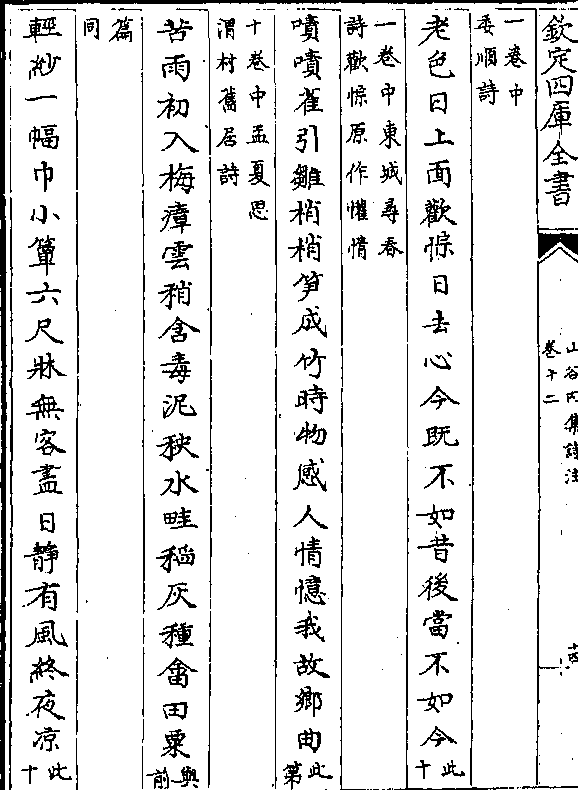 欽定四庫全書
山谷内集詩注
卷十二
十四
一卷中
委順詩
老色日上面歡悰日去心今既不如昔後當不如今此十
一卷中東城尋春
詩歡悰原作懽情
嘖嘖雀引雛梢梢笋成竹時物感人情憶我故鄉曲此第
十卷中孟夏思
渭村舊居詩
苦雨初入梅瘴雲稍含毒泥秧水畦稻灰種畬田粟與前
篇
同
輕紗一幅巾小簟六尺牀無客盡日靜有風終夜凉此十